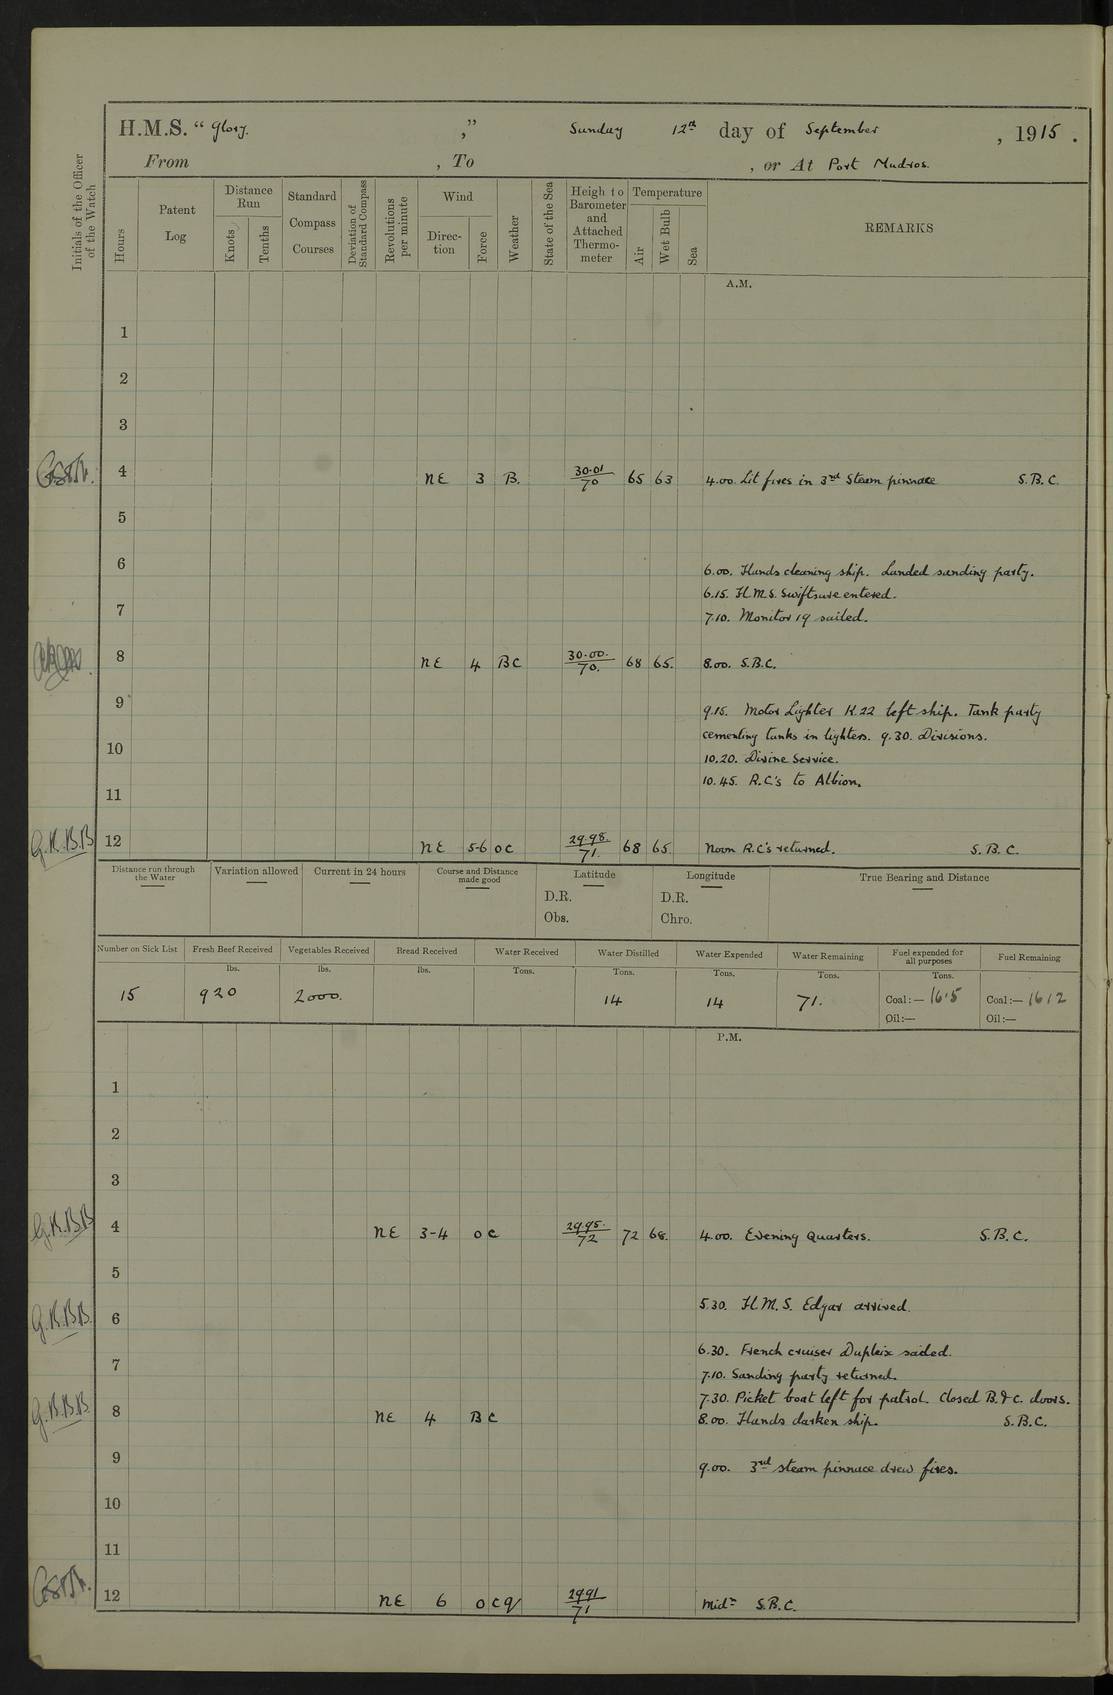 H.M.S. “ Glory. ,” Sunday 12th day of September , 1915 .
From , To , or At Port Mudros.
Initials of the Officer of the Watch
Hours
Patent Log
Distance Run
Knots
Tenths
Standard Compass Courses
Deviation of Standard Compass
Revolutions per minute
Wind
Direction
Force
Weather
State of the Sea
Height of Barometer and Attached Thermometer
Temperature
Air
Wet Bulb
Sea
REMARKS
A.M.
1
2
3
4 NE 3 B. 30.01/70 65 63 4.00. Lit fires in 3rd Steam pinnace S.B.C.
5
6 6.00. Hands cleaning ship. Landed sanding party.
6.15. H.M.S. Swiftsure entered.
7 7.10. Monitor 19 sailed.
8 NE 4 BC 30.00./70. 68 65. 8.00. S.B.C.
9 9.15. Motor Lighter K.22 left ship. Tank party
cementing tanks in lighters. 9.30. Divisions.
10 10.20. Divine Service.
10.45. R.C's to Albion.
11
G.K.B.B 12 NE 5-6 OC 29.98./71. 68 65. Noon R.C's returned. S.B.C.
Distance run through the Water
Variation allowed
Current in 24 hours
Course and Distance made good
Latitude
D.R.
Obs.
Longitude
D.R.
Chro.
True Bearing and Distance
Number on Sick List Fresh Beef Received Vegetables Received Bread Received Water Received Water Distilled Water Expended Water Remaining Fuel expended for all purposes Fuel Remaining
lbs. lbs. lbs. Tons. Tons. Tons. Tons. Tons.
15 920 2000. 14 14 71. Coal:— 16.5 Coal:— 1612
Oil:— Oil:—
P.M.
1
2
3
G.K.B.B 4 NE 3-4 OC 29.95./72 72 68. 4.00. Evening Quarters. S.B.C.
5
5.30. H.M.S. Edgar arrived.
G.K.B.B. 6
6.30. French cruiser Dupleix sailed.
7 7.10. Sanding party returned.
7.30. Picket boat left for patrol. Closed B.&C. doors.
G.K.B.B. 8 NE 4 BC 8.00. Hands darken ship. S.B.C.
9 9.00. 3rd steam pinnace drew fires.
10
11
12 NE 6 OCQ 29.91/71 Midt S.B.C.